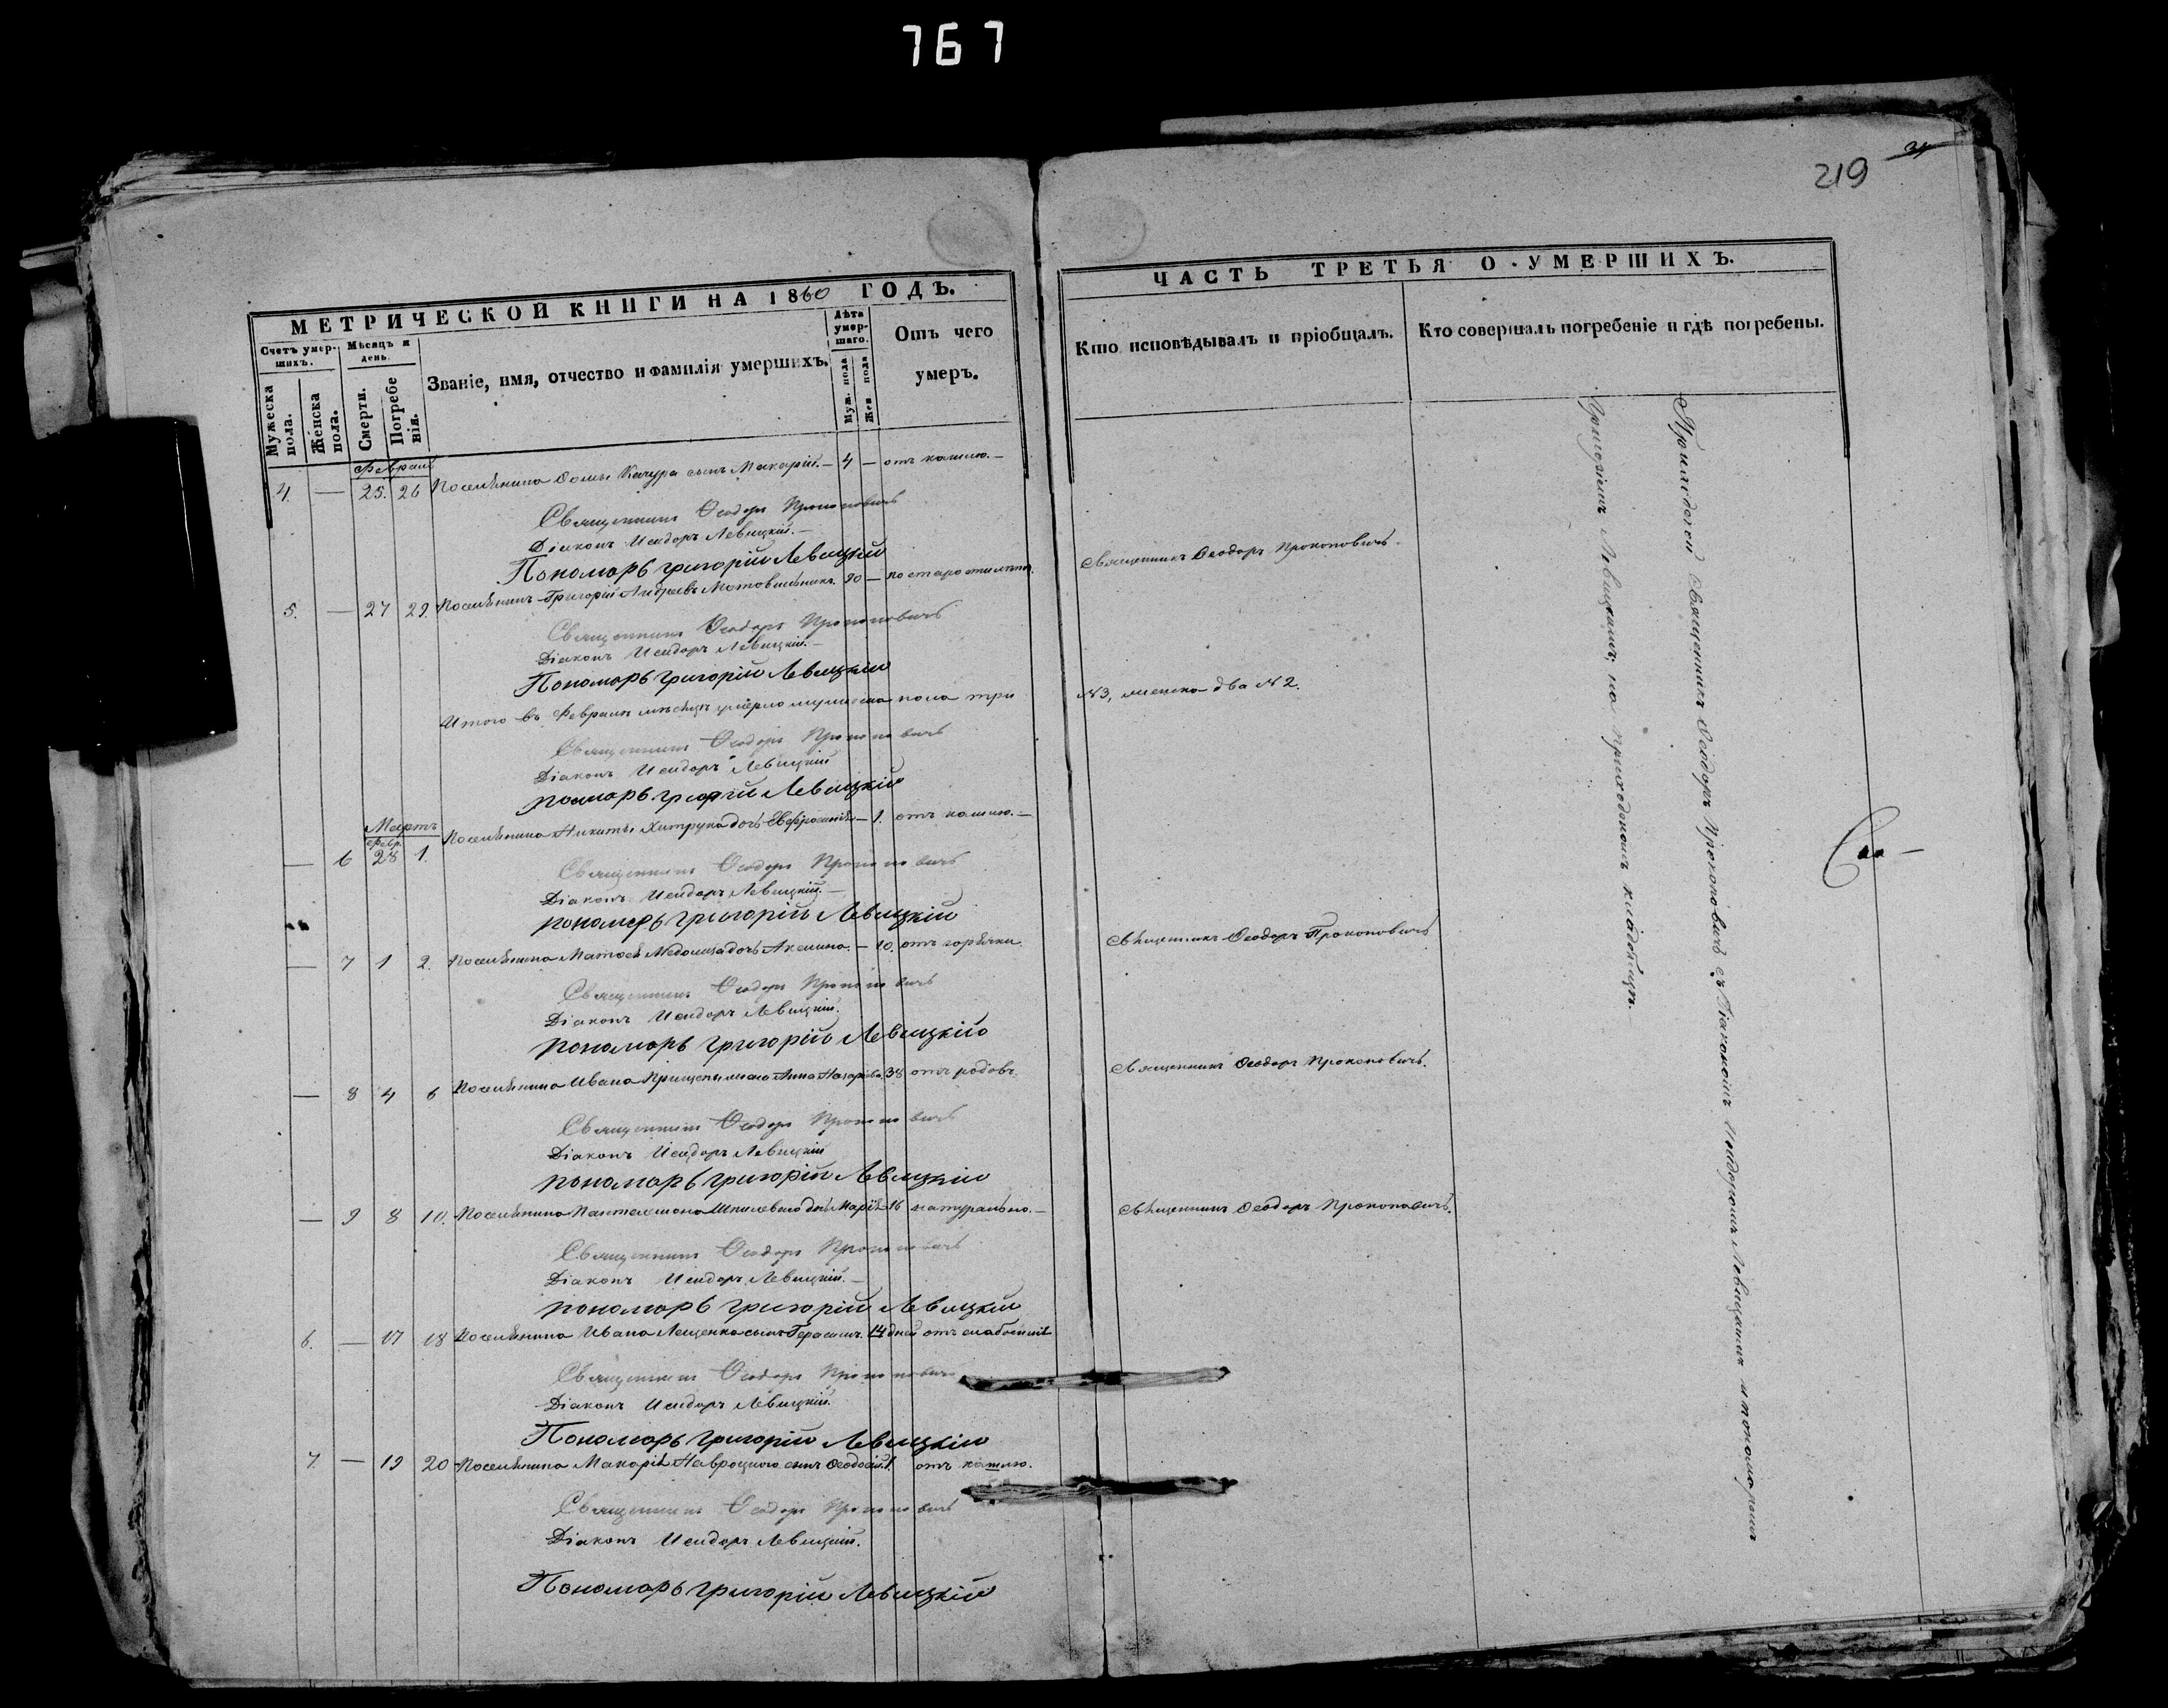 767
219
МЕТРИЧЕСКОЙ КНИГИ НА 1860 ГОДЪ.
Счетъ умер-
шихъ.
Мужеска пола.
Женска пола.
Мѣсяцъ и день.
Смерти.
Погребе
нія.
Званіе, имя, отчество и фамилія умершихъ.
Лѣта умер-
шаго.
Муж. пола
Жен. пола
Отъ чего
умеръ.
Февраль
4. — 25. 26 Поселянина Ѳомы Качура сынъ Макарій. — 4 — отъ кашлю. —
Священникъ Ѳеодоръ Прокоповичъ
Діаконъ Исидоръ Левицкій. —
Пономарь Григорій Левицкій
5. — 27 29. Поселянинъ Григорій Андреевъ Мотовильникъ. 90 — по старости лѣтъ.
Священникъ Ѳеодоръ Прокоповичъ
Діаконъ Исидоръ Левицкій. —
Пономарь Григорій Левицкій
Итого въ Февралѣ мѣсяцѣ умерло мужеска пола три
Священникъ Ѳеодоръ Прокоповичъ
Діаконъ Исидоръ Левицкій
Григорій Левицкій
Мартъ
Февр.
— 6 28 1. Поселянина Никиты Хитрука дочь Евфросинія — 1. отъ кашлю. —
Священникъ Ѳеодоръ Прокоповичъ
Діаконъ Исидоръ Левицкій. —
пономарь Григорій Левицкій
— 7 1 2. Поселянина Матѳея дочь Акилина. — 10. отъ горячки.
Священникъ Ѳеодоръ Прокоповичъ
Діаконъ Исидоръ Левицкій.
пономарь Григорій Левицкій
— 8 4 6 Поселянина Ивана Прищепы жена Анна Назарова 38 отъ родовъ.
Священникъ Ѳеодоръ Прокоповичъ
Діаконъ Исидоръ Левицкій
пономарь Григорій Левицкій
— 9 8 10. Поселянина Пантелеимона Шпилевого дочь Марія 16 натурально. —
Священникъ Ѳеодоръ Прокоповичъ
Діаконъ Исидоръ Левицкій. —
пономарь Григорій Левицкій
6. — 17 18 Поселянина Ивана Лещенка сынъ Герасимъ. 14 дней отъ слабости
Священникъ Ѳеодоръ Прокоповичъ
Діаконъ Исидоръ Левицкій.
Пономарь Григорій Левицкій
7. — 19 20 Поселянина Макарія Навроцкого сынъ Ѳеодосій. 1. отъ кашлю.
Священникъ Ѳеодоръ Прокоповичъ
Діаконъ Исидоръ Левицкій.
Пономарь Григорій Левицкій
ЧАСТЬ ТРЕТЬЯ О УМЕРШИХЪ.
Кто исповѣдывалъ и пріобщалъ.
Кто совершалъ погребеніе и гдѣ погребены.
Священникъ Ѳеодоръ Прокоповичъ.
№ 3, женска два № 2.
Священникъ Ѳеодоръ Прокоповичъ
Священникъ Ѳеодоръ Прокоповичъ.
Священникъ Ѳеодоръ Прокоповичъ.
Приходской Священникъ Ѳеодоръ Прокоповичъ съ Діакономъ Исидоромъ Левицкимъ и пономаремъ
Григоріемъ Левицкимъ, на приходскомъ кладбищѣ.